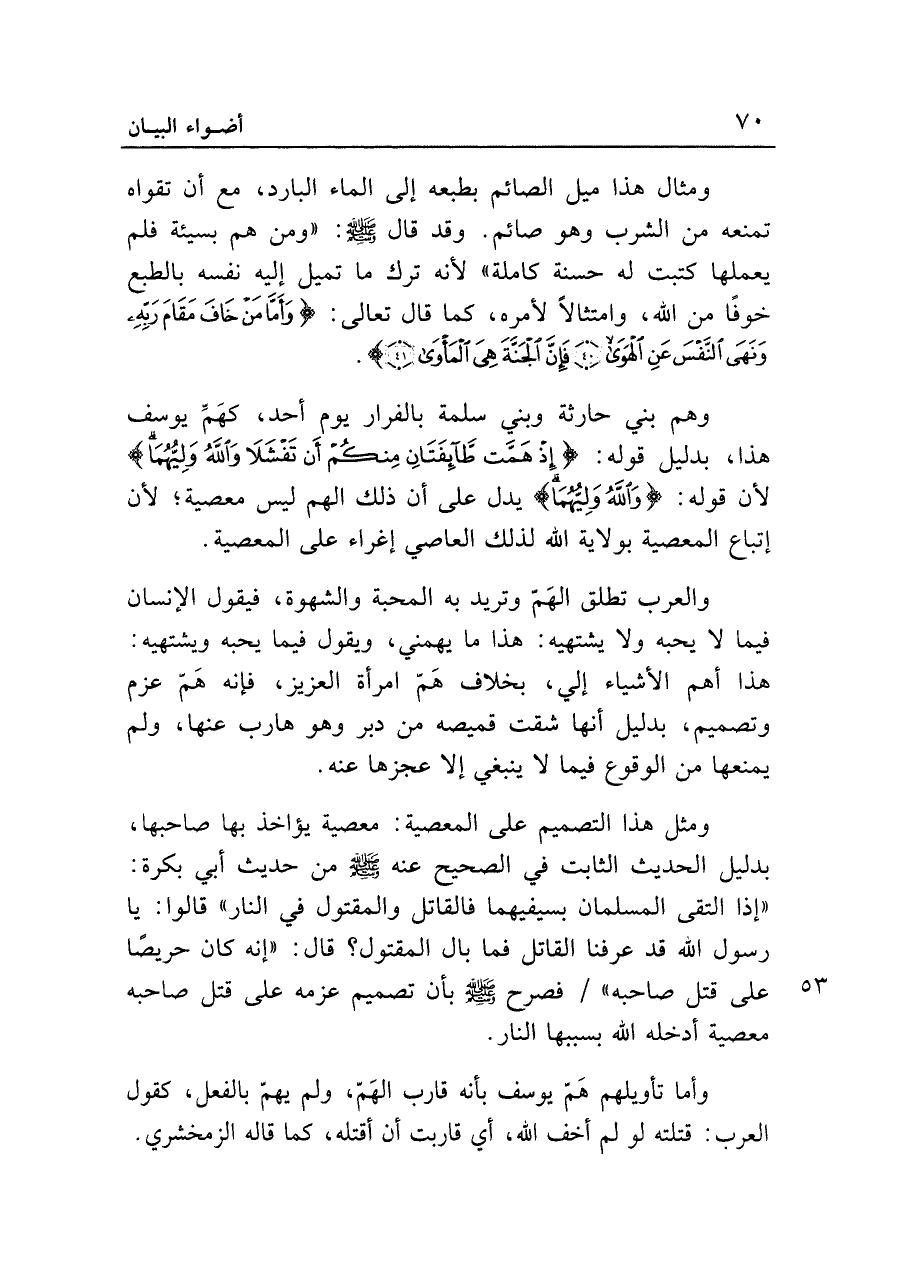 ٧٠ أضواء البيان
ومثال هذا ميل الصائم بطبعه إلى الماء البارد، مع أن تقواه
تمنعه من الشرب وهو صائم. وقد قال ﷺ: «ومن هم بسيئة فلم
يعملها كتبت له حسنة كاملة» لأنه ترك ما تميل إليه نفسه بالطبع
خوفًا من الله، وامتثالاً لأمره، كما قال تعالى: ﴿ وَأَمَّا مَنْ خَافَ مَقَامَ رَبِّهِۦ
وَنَهَى ٱلنَّفْسَ عَنِ ٱلْهَوَىٰ ۝٤٠ فَإِنَّ ٱلْجَنَّةَ هِىَ ٱلْمَأْوَىٰ ۝٤١﴾.
وهم بني حارثة وبني سلمة بالفرار يوم أحد، كهَمِّ يوسف
هذا، بدليل قوله: ﴿ إِذْ هَمَّت طَّآئِفَتَانِ مِنكُمْ أَن تَفْشَلَا وَٱللَّهُ وَلِيُّهُمَاۗ﴾
لأن قوله: ﴿وَٱللَّهُ وَلِيُّهُمَاۗ﴾ يدل على أن ذلك الهم ليس معصية؛ لأن
إتباع المعصية بولاية الله لذلك العاصي إغراء على المعصية.
والعرب تطلق الهَمّ وتريد به المحبة والشهوة، فيقول الإنسان
فيما لا يحبه ولا يشتهيه: هذا ما يهمني، ويقول فيما يحبه ويشتهيه:
هذا أهم الأشياء إلي، بخلاف هَمّ امرأة العزيز، فإنه هَمّ عزم
وتصميم، بدليل أنها شقت قميصه من دبر وهو هارب عنها، ولم
يمنعها من الوقوع فيما لا ينبغي إلا عجزها عنه.
ومثل هذا التصميم على المعصية: معصية يؤاخذ بها صاحبها،
بدليل الحديث الثابت في الصحيح عنه ﷺ من حديث أبي بكرة:
«إذا التقى المسلمان بسيفيهما فالقاتل والمقتول في النار» قالوا: يا
رسول الله قد عرفنا القاتل فما بال المقتول؟ قال: «إنه كان حريصًا
٥٣ على قتل صاحبه» / فصرح ﷺ بأن تصميم عزمه على قتل صاحبه
معصية أدخله الله بسببها النار.
وأما تأويلهم هَمّ يوسف بأنه قارب الهَمّ، ولم يهمّ بالفعل، كقول
العرب: قتلته لو لم أخف الله، أي قاربت أن أقتله، كما قاله الزمخشري.